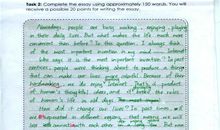 Task 2: Complete the essay using approximately 150 words. You will
receive a possible 20 points for writing the essay.
Nowadays, people are busy working, enjoying, playing
in their daily lives. But what makes the life much more
convenient than before? To this question, I always think
the most important invention in my mind Internet
Who says it is the most important invention? In past
centuries, people were thinking about to produce things
that can make our lives more colorful. Because of their
hardworking, we do enjoy Internet. That's a product
of human's thoughtful ideas, and it the rules
human's life in old days
How did it change our lives? In past times, will
be separated in different regions, that means we will
lose connect with each other But